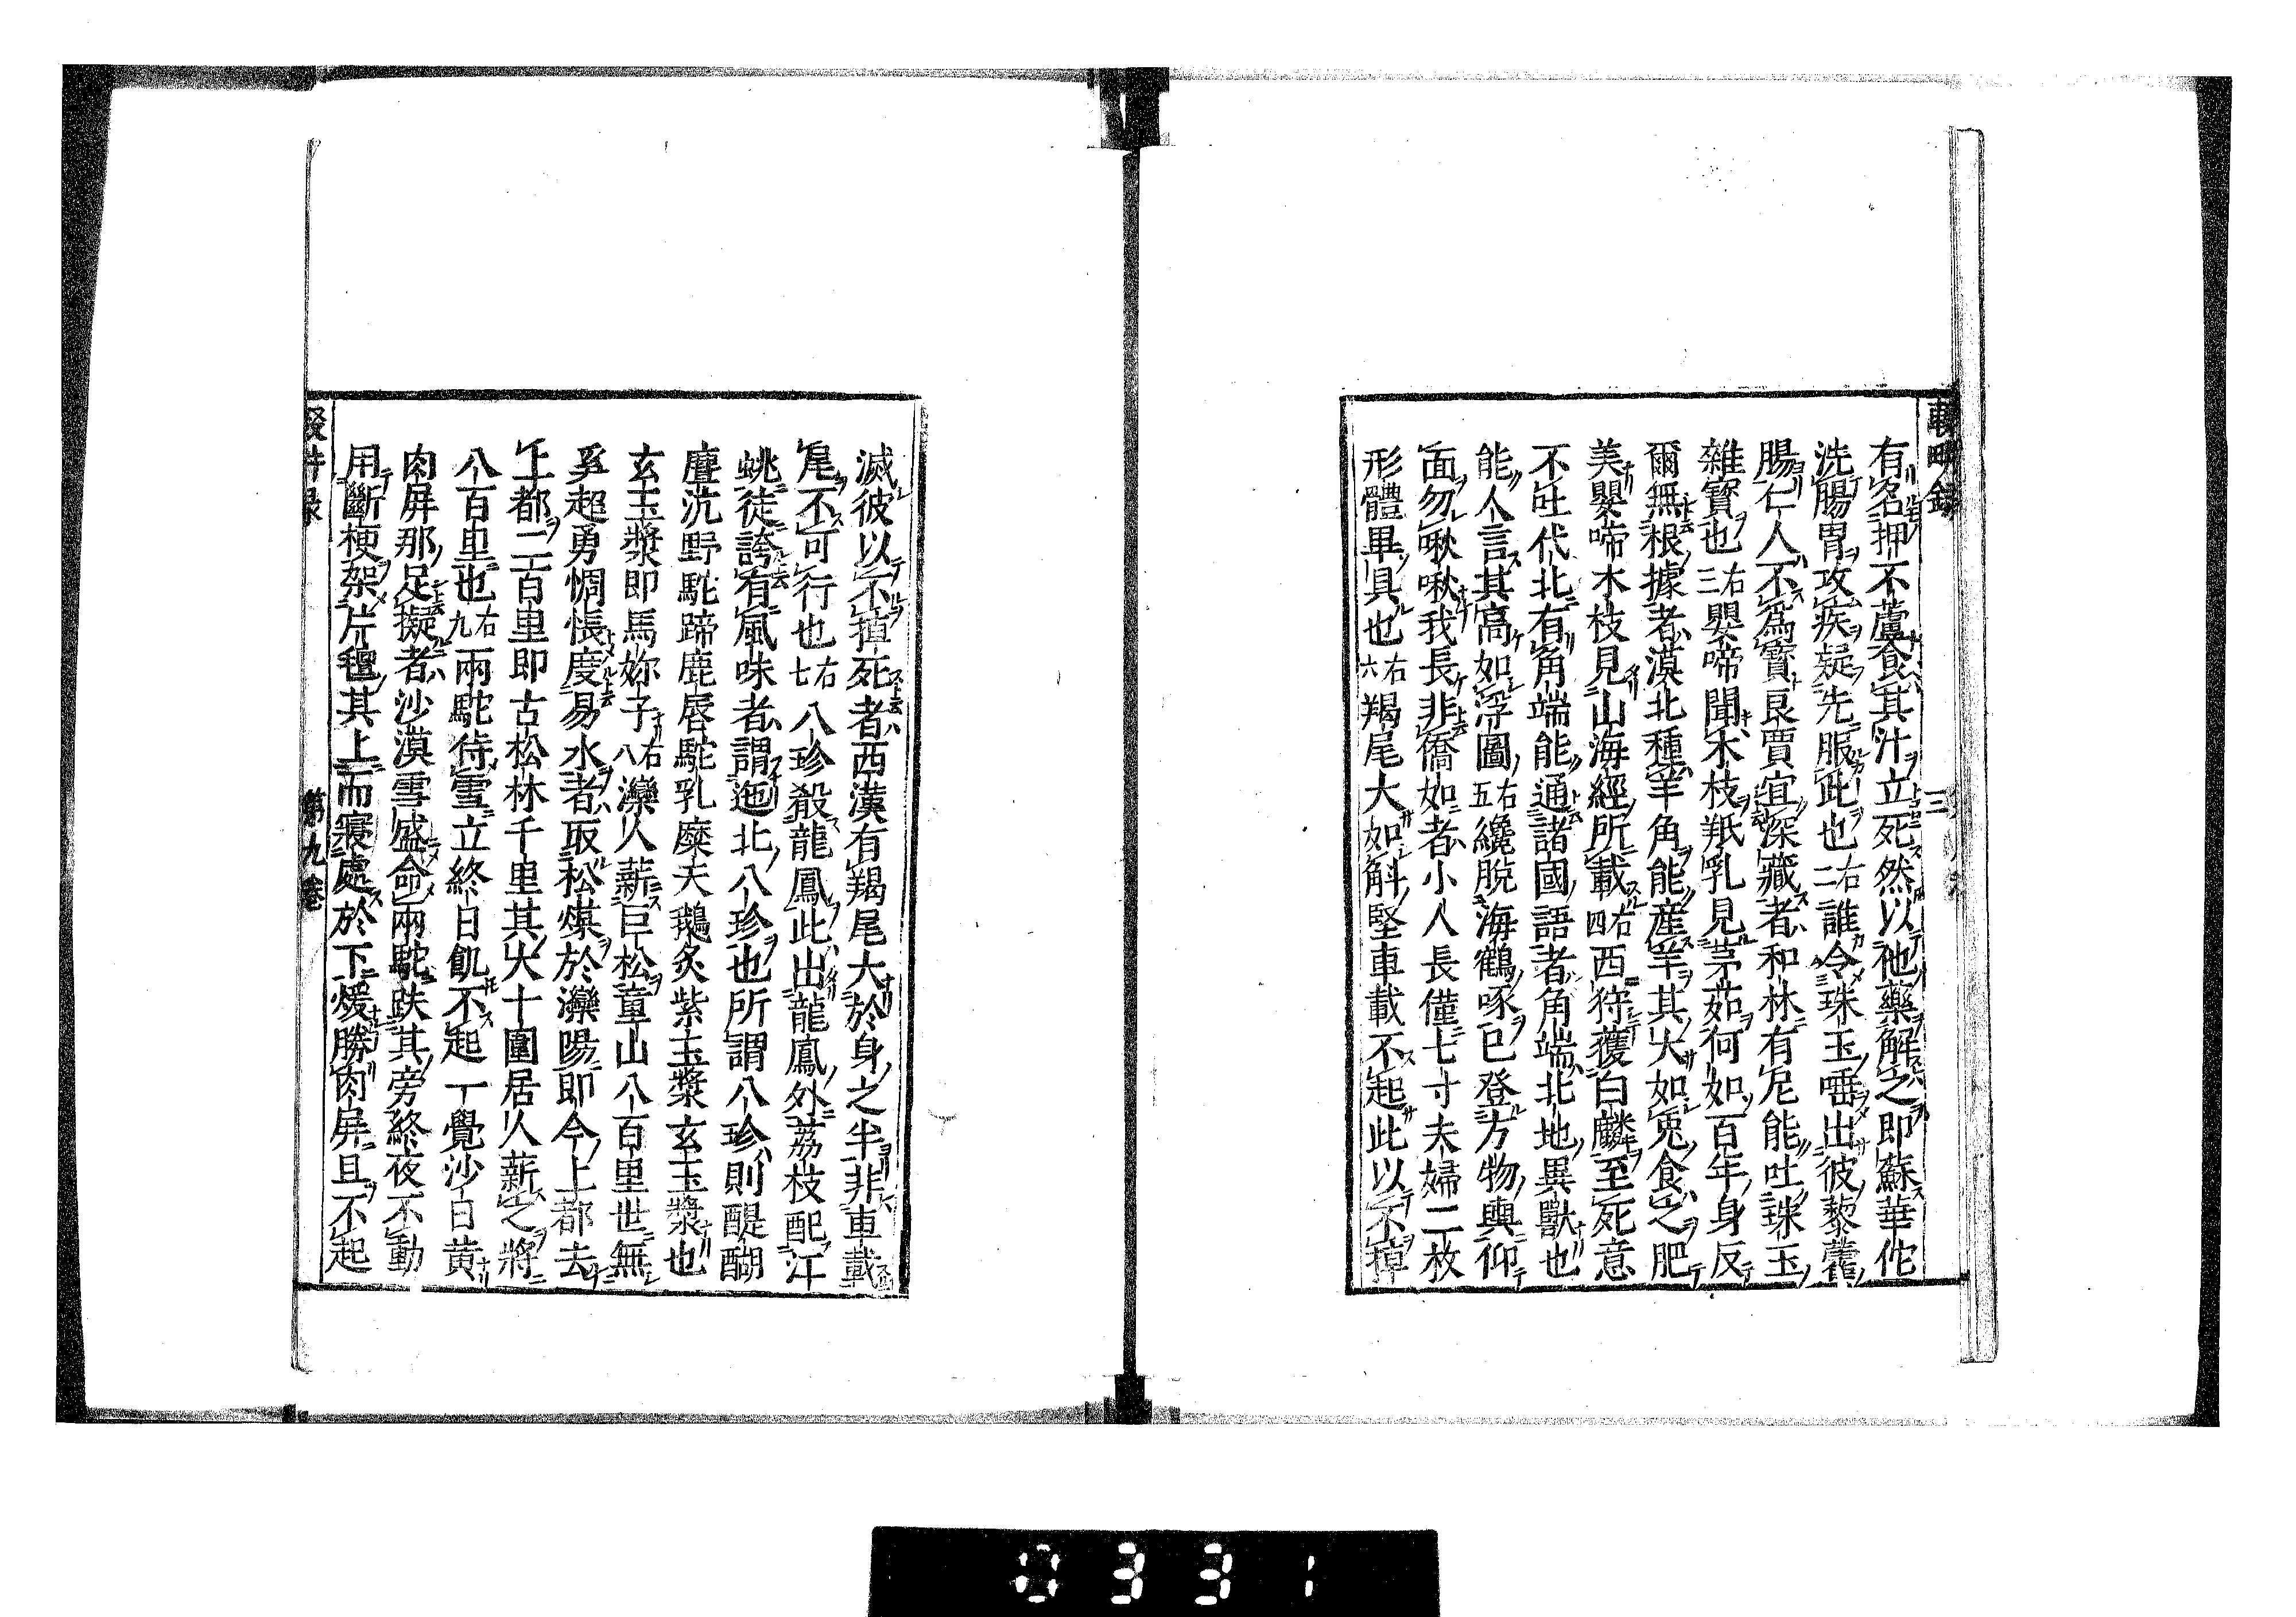 輟畊錄
三
有名押不蘆食其汁立死然以他藥解之即蘇華佗
洗腸胃攻疾疑先服此也右二誰令珠玉唾出彼藜藿
腸仁人不爲寶良賈宜深藏者和林有尼能吐珠玉
雜寶也右三嬰啼聞木枝羝乳見茅茹何如百年身反
爾無根據者漠北種羊角能産羊其大如兎食之肥
美嬰啼木枝見山海經所載右四西狩獲白麟至死意
不吐代北有角端能通諸國語者角端北地異獸也
能人言其高如浮圖右五纔脫海鶴啄已登方物輿仰
面勿啾啾我長非僑如者小人長僅七寸夫婦二枚
形體畢具也右六羯尾大如斛堅車載不起此以不掉
滅彼以不掉死者西漢有羯尾大於身之半非車載
尾不可行也右七八珍殽龍鳳此出龍鳳外荔枝配江
蛾徒誇有風味者謂迤北八珍也所謂八珍則醍醐
麆沆野駝蹄鹿唇駝乳糜天鵝炙紫玉漿玄玉漿也
玄玉漿即馬妳子右八灤人薪巨松童山八百里世無
奚超勇惆悵度易水者取松煤於灤陽即今上都去
上都二百里即古松林千里其大十圍居人薪之將
八百里也右九兩駝侍雪立終日飢不起一覺沙日黄
肉屏那足擬者沙漠雪盛命兩駝趺其旁終夜不動
用斷梗架片氊其上而寢處於下煖勝肉屏且不起
輟畊录
第九卷
0331